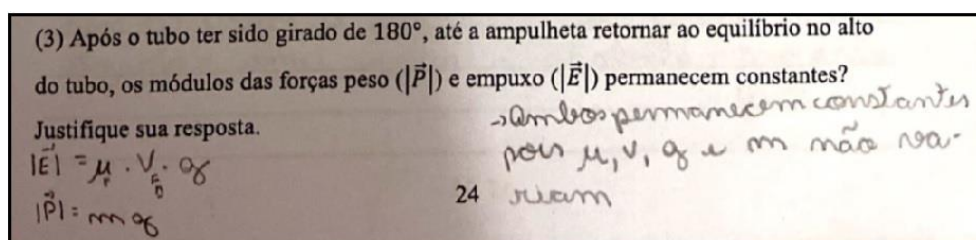 (3) Após o tubo ter sido girado de 180°, até a ampulheta retornar ao equilíbrio no alto
do tubo, os módulos das forças peso (|P⃗|) e empuxo (|E⃗|) permanecem constantes?
Justifique sua resposta.
→ Ambos permanecem constantes
pois μ, V, g e m não va-
riam
|E⃗| = μF . VFD . g
|P⃗| = mg
24